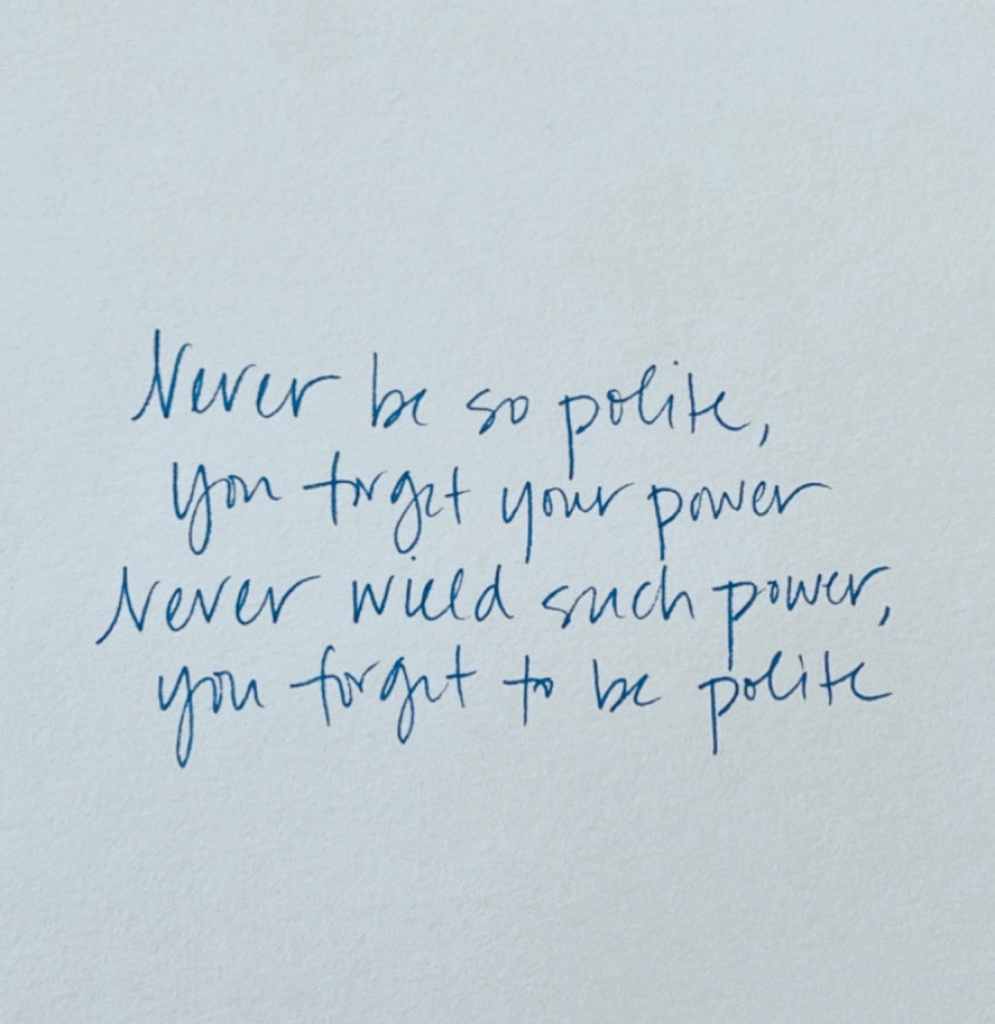 Never be so polite,
you forget your power
Never wield such power,
you forget to be polite